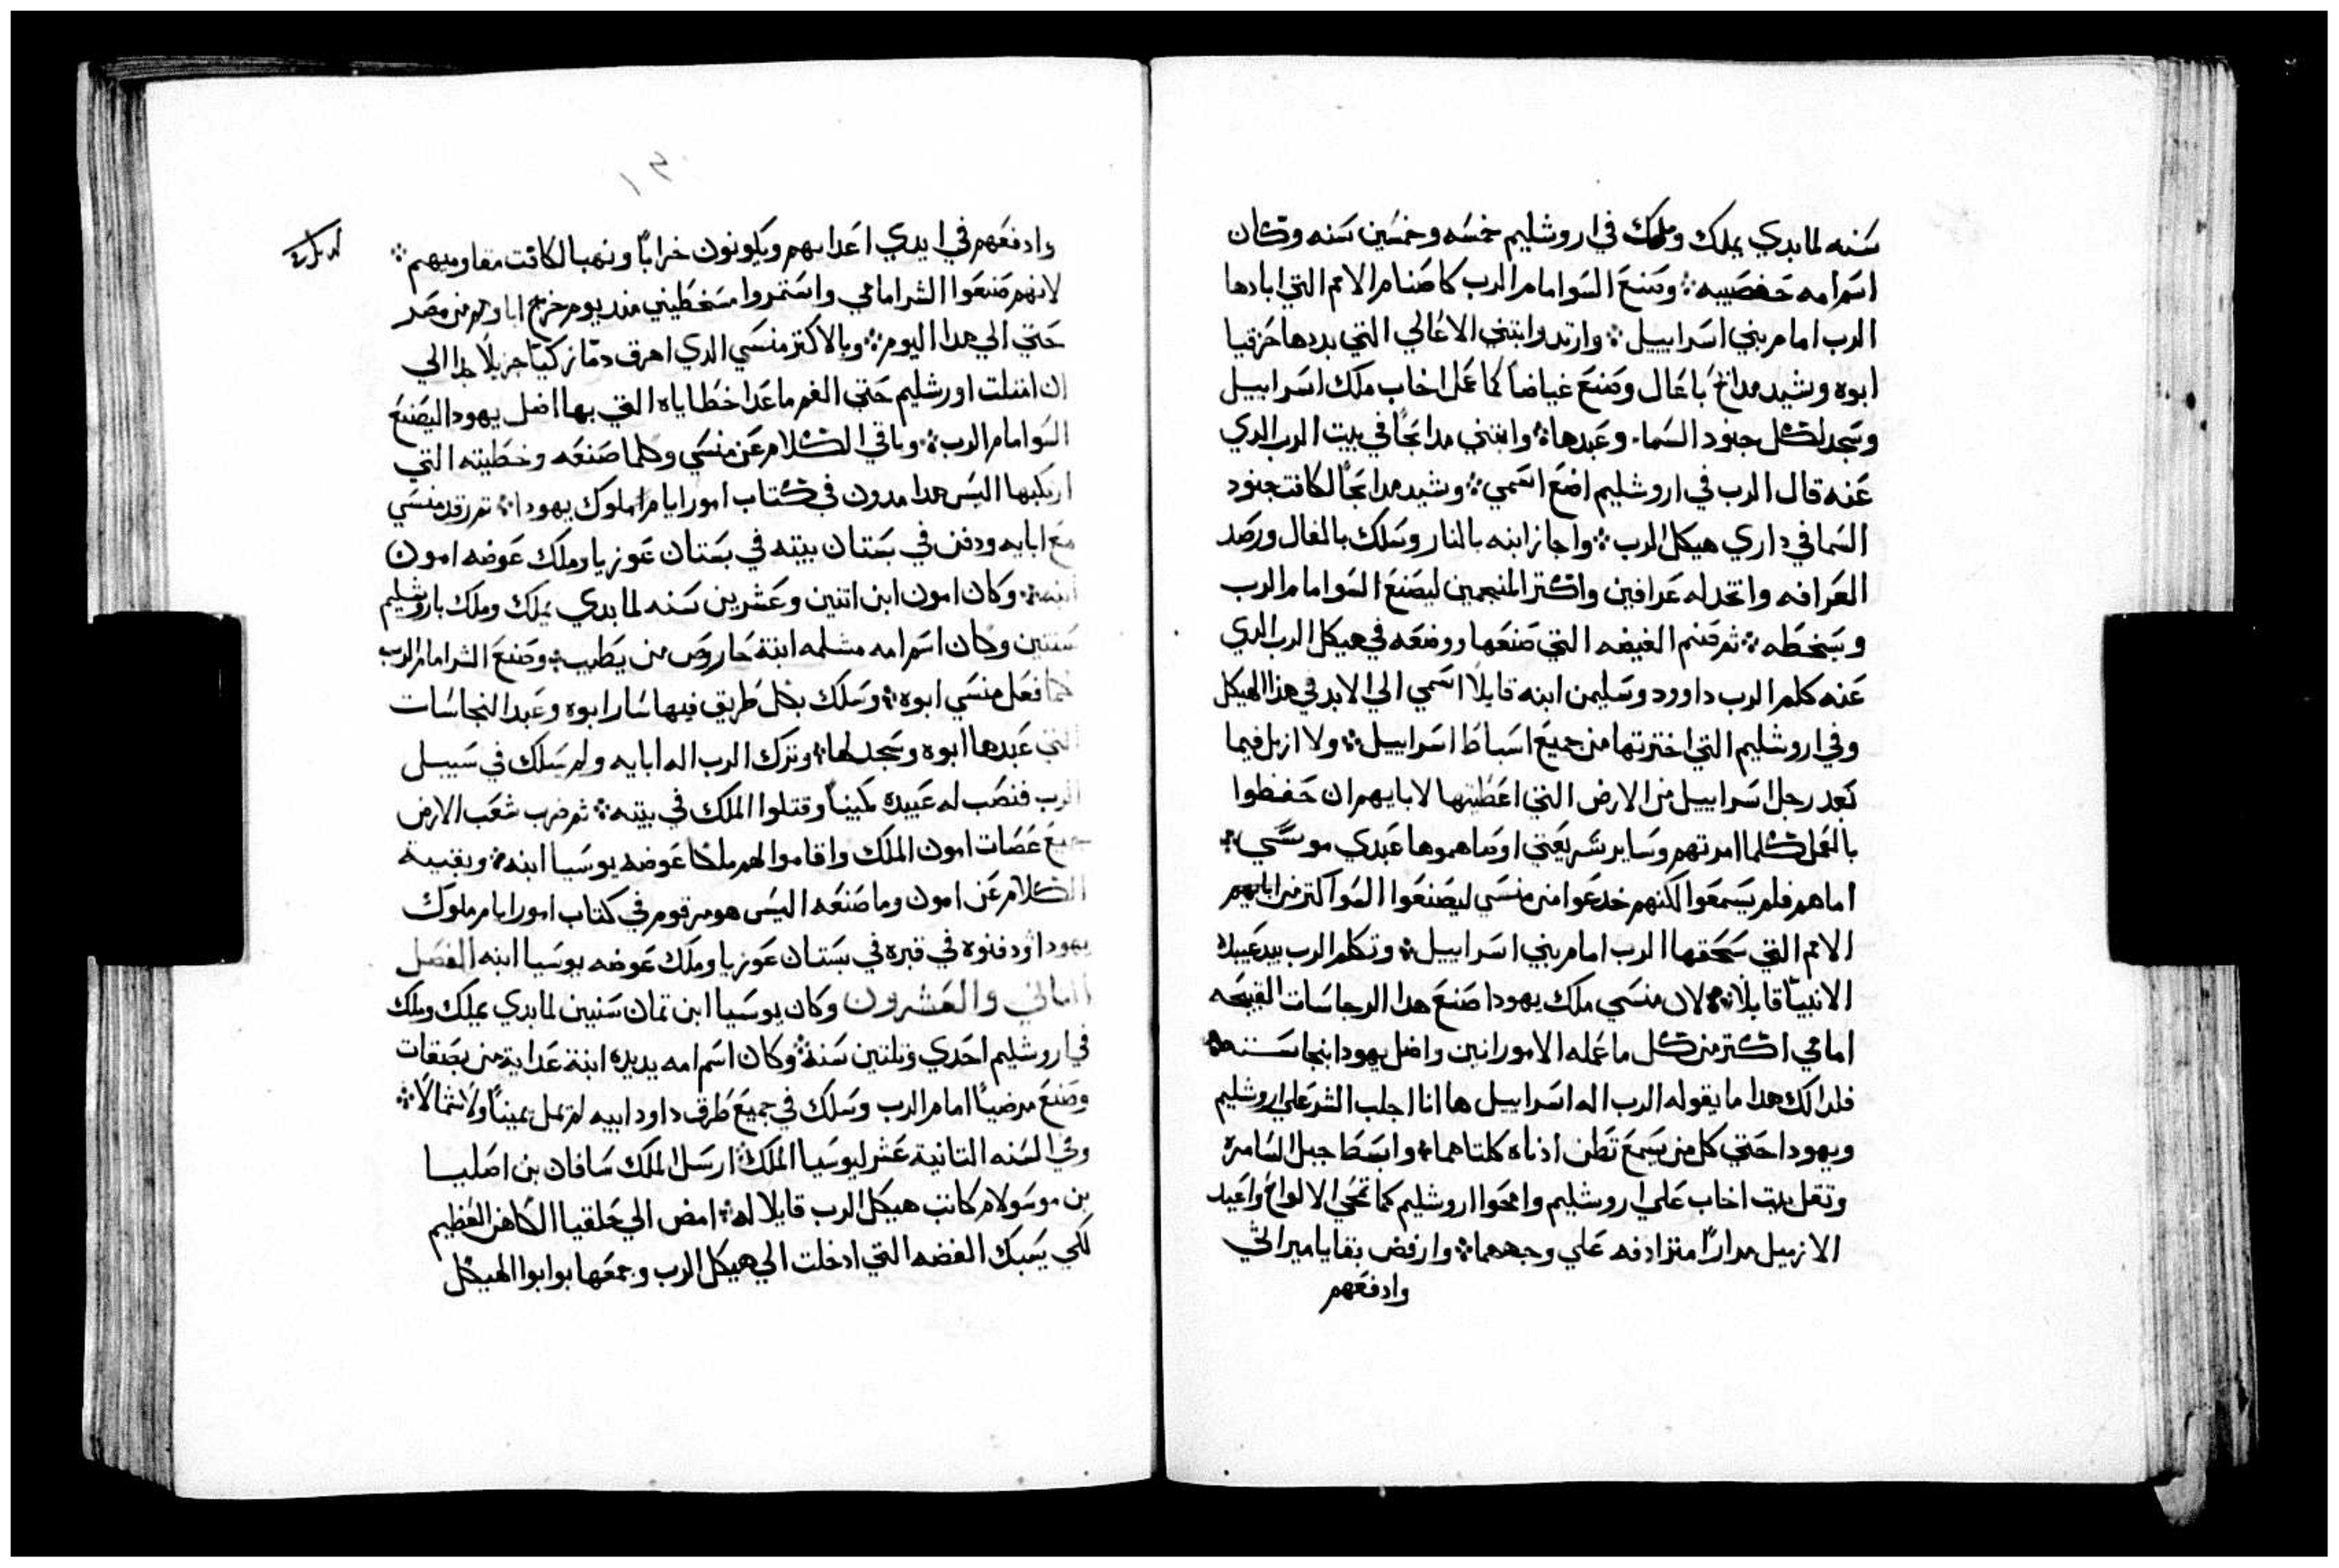 سنه لما بدي يملك وملك في اروشليم خمسه وخمسين سنه وكان
اسم امه حفصيبه ⁘ وصنع السوا امام الرب كاصنام الامم التي ابادها
الرب امام بني اسراييل ⁘ وارتد وابتني الاعالي التي بددها حزقيا
ابوه وشيد مدابح باعال وصنع غياضا كما عمل اخاب ملك اسراييل
وسجد لكل جنود السماء وعبدها ⁘ وابتني مدابحا في بيت الرب الدي
عنه قال الرب في اروشليم اضع اسمي ⁘ وشيد مدابحا لكافت جنود
السما في داري هيكل الرب ⁘ واجاز ابنه بالنار وسلك بالفال ورصد
العرافه واتخد له عرافين واكتر المنجمين ليصنع السوا امام الرب
ويسخطه ⁘ تم صنم الغيضه التي صنعها ووضعه في هيكل الرب الدي
عنه كلم الرب داوود وسليمن ابنه قايلا اسمي الي الابد في هذا الهيكل
وفي اروشليم التي اخترتها من جميع اسباط اسراييل ⁘ ولا ازيل فيما
بعد رجل اسراييل من الارض التي اعطيتها لابايهم ان حفظوا
بالعمل كلما امرتهم وساير شريعتي اوصاهموها عبدي موسي ⁘
اما هم فلم يسمعوا لكنهم خدعوا من منسي ليصنعوا السوا اكتر من ابايهم
الامم التي سحقها الرب امام بني اسراييل ⁘ وتكلم الرب بيد عبيده
الانبيا قايلا ⁘ لان منسي ملك يهودا صنع هدا الرجاسات القبيحه
امامي اكتر من كل ما عمله الامورانين واضل يهودا بنجاسته
فلدالك هدا ما يقوله الرب اله اسراييل ها انا اجلب الشر علي اروشليم
ويهودا حتي كل من يسمع تطن ادناه كلتاهما ⁘ وابسط حبل السامره
وتقل بيت اخاب علي اروشليم وامحوا اروشليم كما تمحي الالواح واعيد
الازميل مدارا متزادفه علي وجهها ⁘ وارفض بقايا ميراتي
وادفعهم
وادفعهم في ايدي اعدايهم ويكونون خرابا ونهبا لكافت مقاوميهم ⁘
لانهم صنعوا الشر امامي واستمروا مسخطيني مند يوم خرج اباوهم من مصر
حتي الي هدا اليوم ⁘ وبالاكتر منسي الدي اهرق دما زكيا جزيلا جدا الي
ان امتلت اورشليم حتي الفم ما عدا خطاياه التي بها اضل يهودا ليصنع
السوا امام الرب ⁘ وباقي الكلام عن منسي وكلما صنعه وخطيته التي
ارتكبها اليس هدا مدون في كتاب امور ايام املوك يهودا ⁘ تم رقد منسي
مع ابايه ودفن في بستان بيته في بستان عوزيا وملك عوضه امون
ابنه ⁘ وكان امون ابن اتنين وعشرين سنه لما بدي يملك وملك باروشليم
سنتين وكان اسم امه مشلمه ابنة حاروص من يطبيه ⁘ وصنع الشر امام الرب
كما فعل منسي ابوه ⁘ وسلك بكل طريق فيها سار ابوه وعبد النجاسات
التي عبدها ابوه وسجد لها ⁘ وترك الرب اله ابايه ولم سلك في سبيل
الرب فنصب له عبيده كمينا وقتلوا الملك في بيته ⁘ تم ضرب شعب الارض
جميع عصات امون الملك واقاموا لهم ملكا عوضه يوسيا ابنه ⁘ وبقيية
الكلام عن امون وما صنعه اليس هو مرقوم في كتاب امور ايام ملوك
يهودا ودفنوه في قبره في بستان عوزيا وملك عوضه يوسيا ابنه الفصل
التاني والعشرون وكان يوسيا ابن تمان سنيين لما بدي يملك وملك
في اروشليم احدي وتلتين سنة ⁘ وكان اسم امه يديده ابنة عدايه من بصقات
وصنع مرضيا امام الرب وسلك في جميع طرف داود ابيه لم يمل يمينا ولا شمالا ⁘
وفي السنه التانية عشر ليوسيا الملك ارسل الملك سافان بن اصليا
بن موسولام كاتب هيكل الرب قايلا له ⁘ امض الي حلقيا الكاهن العظيم
لكي يسبك الفضه التي ادخلت الي هيكل الرب وجمعها بوابوا الهيكل